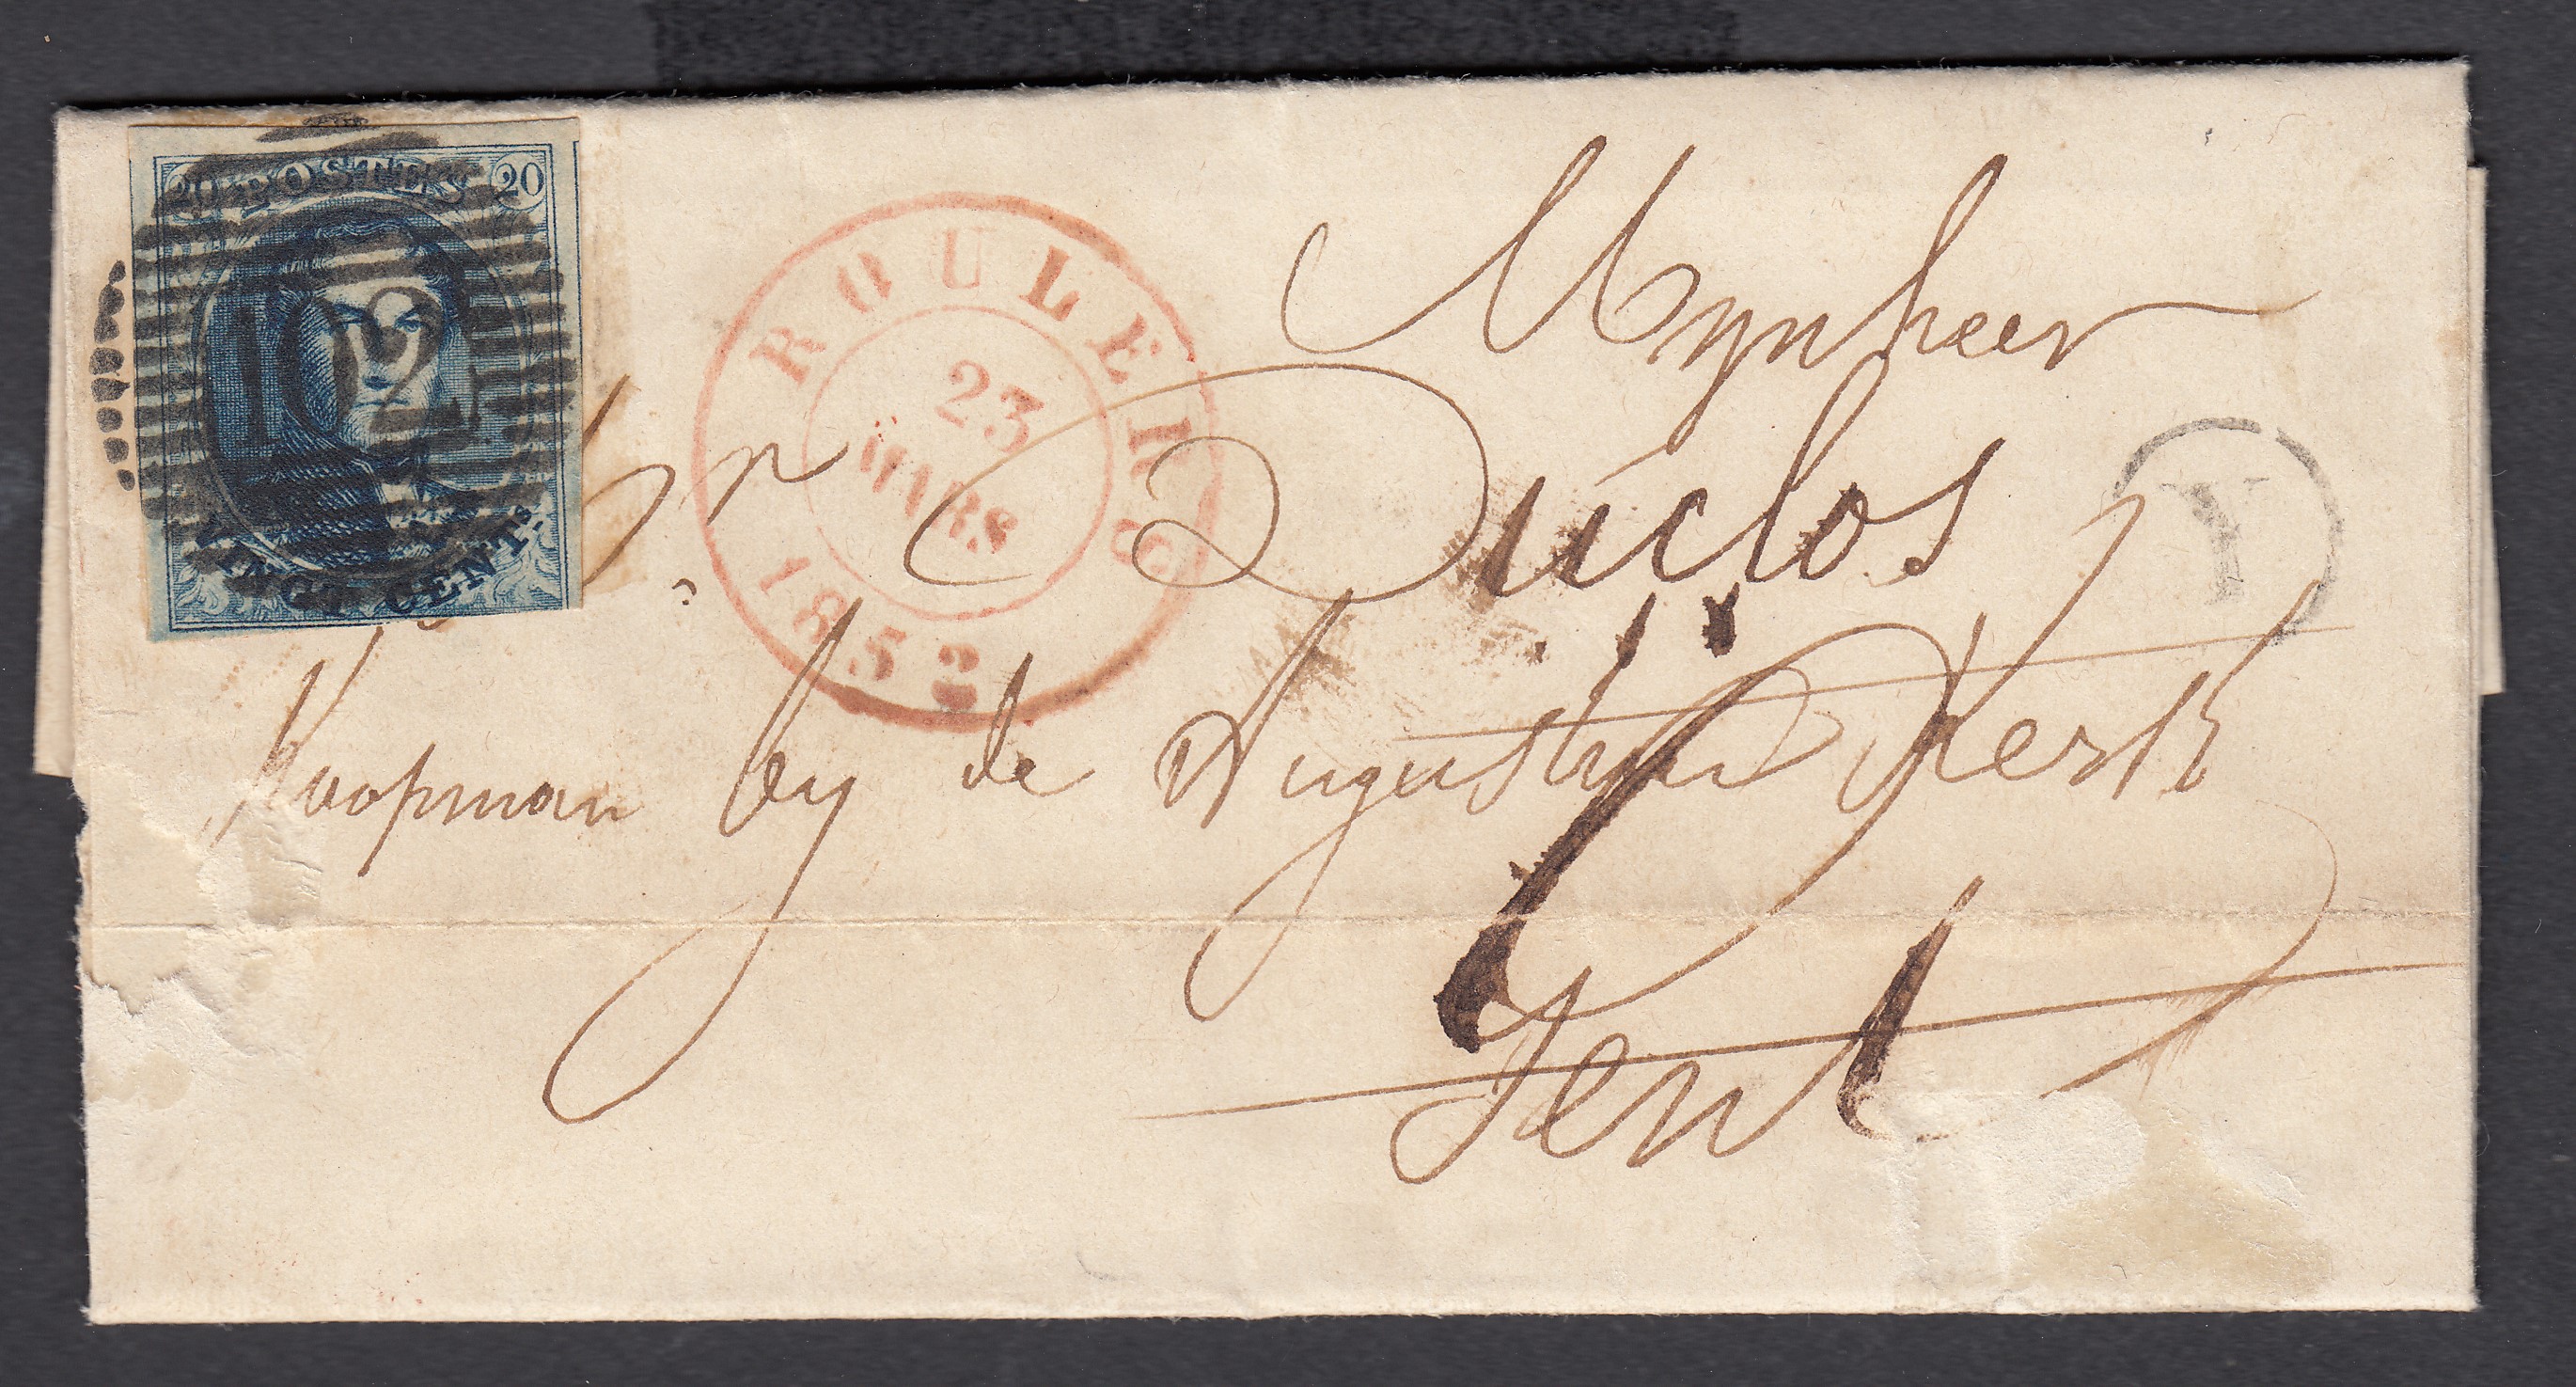 20 POSTES 20
102
VINGT CENTS.
ROULERS
23
MARS
1852
Mynheer
Duclos
Koopman by de Augustyne Kerk
Gent